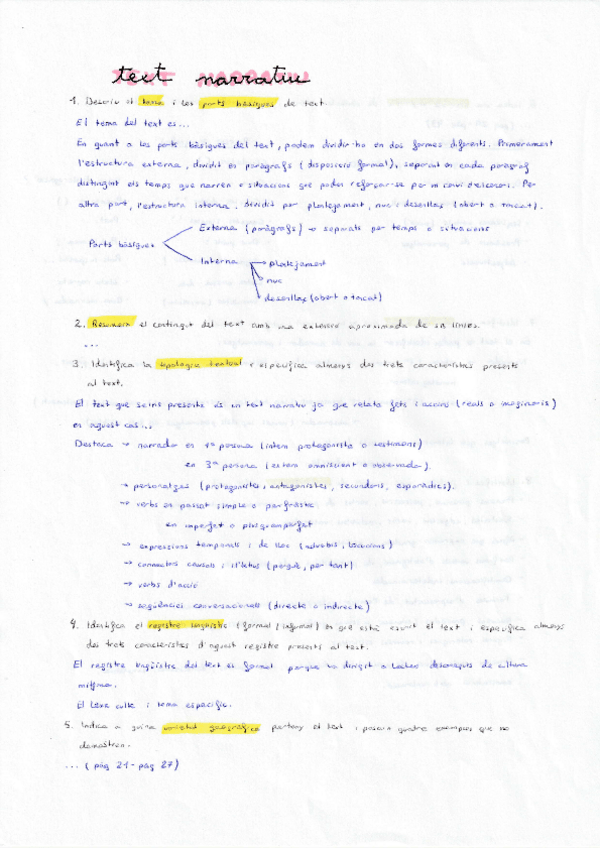 text narratiu
1. Descriu el tema i les parts bàsiques de text
El tema del text es...
En quant a les parts bàsiques del text, podem dividir-ho en dos formes diferents. Primerament
l'estructura externa, dividit en paràgrafs (disposició formal), separat en cada paràgraf
distingint els temps que narren o situacions que poden reforçar-se per un canvi d'escenari. Per
altra part, l'estructura interna, dividit per plantejament, nuc i desenllaç (obert o tancat).
Externa (paràgrafs) → separats per temps o situacions
Parts bàsiques
Interna → plantejament
→ nuc
→ desenllaç (obert o tancat)
2. Resumeix el contingut del text amb una extensió aproximada de 10 línies.
...
3. Identifica la tipologia textual i especifica almenys dos trets característics presents
al text.
El text que se'ns presenta és un text narratiu ja que relata fets i accions (reals o imaginaris)
en aquest cas...
Destaca → narrador en 1ª persona (intern protagonista o testimoni)
en 3ª persona (extern omniscient o observador).
→ personatges (protagonistes, antagonistes, secundaris, esporàdics).
→ verbs en passat simple o perifràstic
en imperfet o plusquamperfet
→ expressions temporals i de lloc (adverbis, locucions)
→ connectors causals i il·latius (perquè, per tant)
→ verbs d'acció
→ seqüències conversacionals (directe o indirecte)
4. Identifica el registre lingüístic (formal/informal) en que està escrit el text i especifica almenys
dos trets característics d'aquest registre presents al text.
El registre lingüístic del text es formal perque va dirigit a lectors de cultura
mitjana.
El lèxic culte i tema específic.
5. Indica a quina varietat geogràfica pertany el text i posa quatre exemples que ho
demostren.
... (pàg 21 - pàg 27)